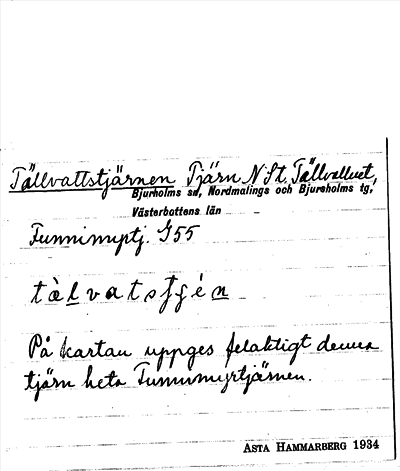 Tällvattstjärnen Tjärn N St. Tällvattnet,
Bjurholms sn, Nordmalings och Bjureholms tg,
Västerbottens län
Tunnimyrtj. G55
tàlvatsfjén
På kartan uppges felaktigt denna
tjärn heta Tunnimyrtjärnen.
ASTA HAMMARBERG 1934